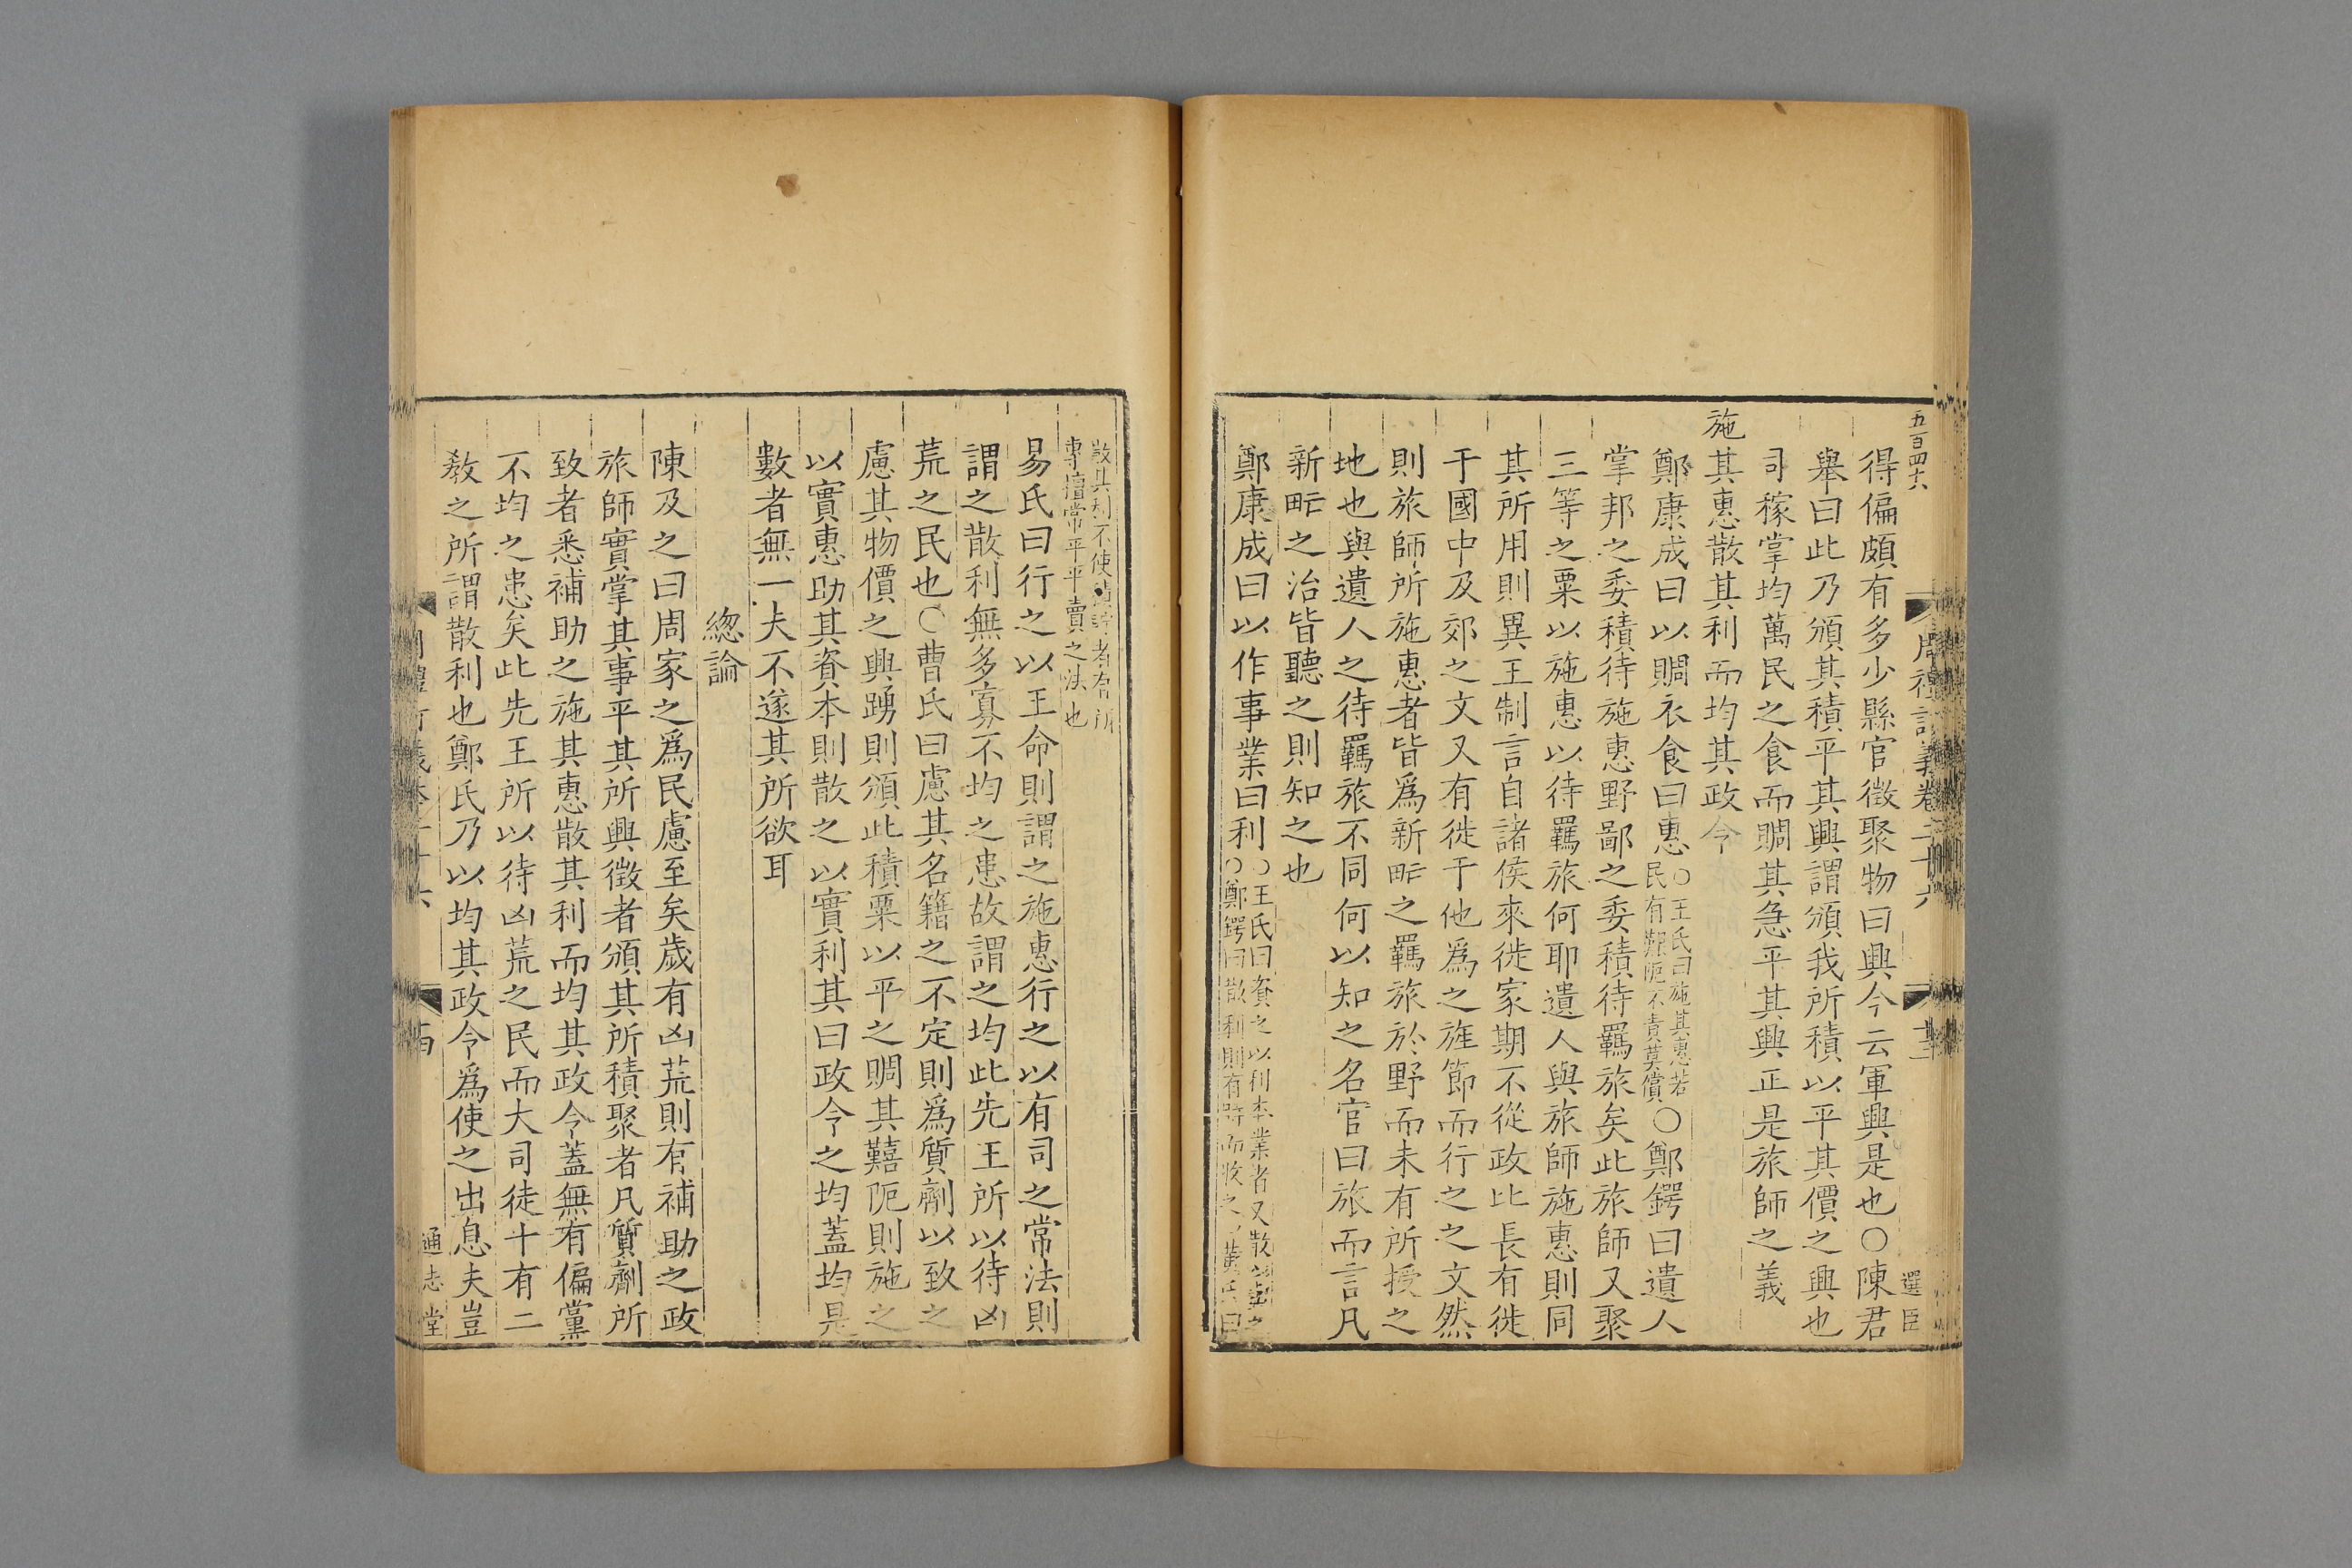 五百四十六
得偏頗有多少縣官徵聚物曰興今云軍興是也○陳君
舉曰此乃頒其積平其興謂頒我所積以平其價之興也
司稼掌均萬民之食而賙其急平其興正是旅師之義
施其惠散其利而均其政令
鄭康成曰以賙衣食曰惠○王氏曰施其惠若民有艱阨不責其償○鄭鍔曰遺人
掌邦之委積待施惠野鄙之委積待羇旅矣此旅師又聚
三等之粟以施惠以待羇旅何耶遺人與旅師施惠則同
其所用則異王制言自諸侯來徙家期不從政比長有徙
于國中及郊之文又有徙于他爲之旌節而行之之文然
則旅師所施惠者皆爲新甿之羇旅於野而未有所授之
地也與遺人之待羇旅不同何以知之名官曰旅而言凡
新甿之治皆聽之則知之也
鄭康成曰以作事業曰利○王氏曰資之以利本業者又散○鄭鍔曰散利則有時而收之○黃氏曰
周禮訂義卷二十六
選臣
散其利不使者有所
專擅常平平賣之法也
易氏曰行之以王命則謂之施惠行之以有司之常法則
謂之散利無多寡不均之患故謂之均此先王所以待凶
荒之民也○曹氏曰慮其名籍之不定則爲質劑以致之
慮其物價之興踴則頒此積粟以平之賙其囏阨則施之
以實惠助其資本則散之以實利其曰政令之均蓋均是
數者無一夫不遂其所欲耳
緫論
陳及之曰周家之爲民慮至矣歲有凶荒則有補助之政
旅師實掌其事平其所興徵者頒其所積聚者凡質劑所
致者悉補助之施其惠散其利而均其政令蓋無有偏黨
不均之患矣此先王所以待凶荒之民而大司徒十有二
敎之所謂散利也鄭氏乃以均其政令爲使之出息夫豈
通志堂